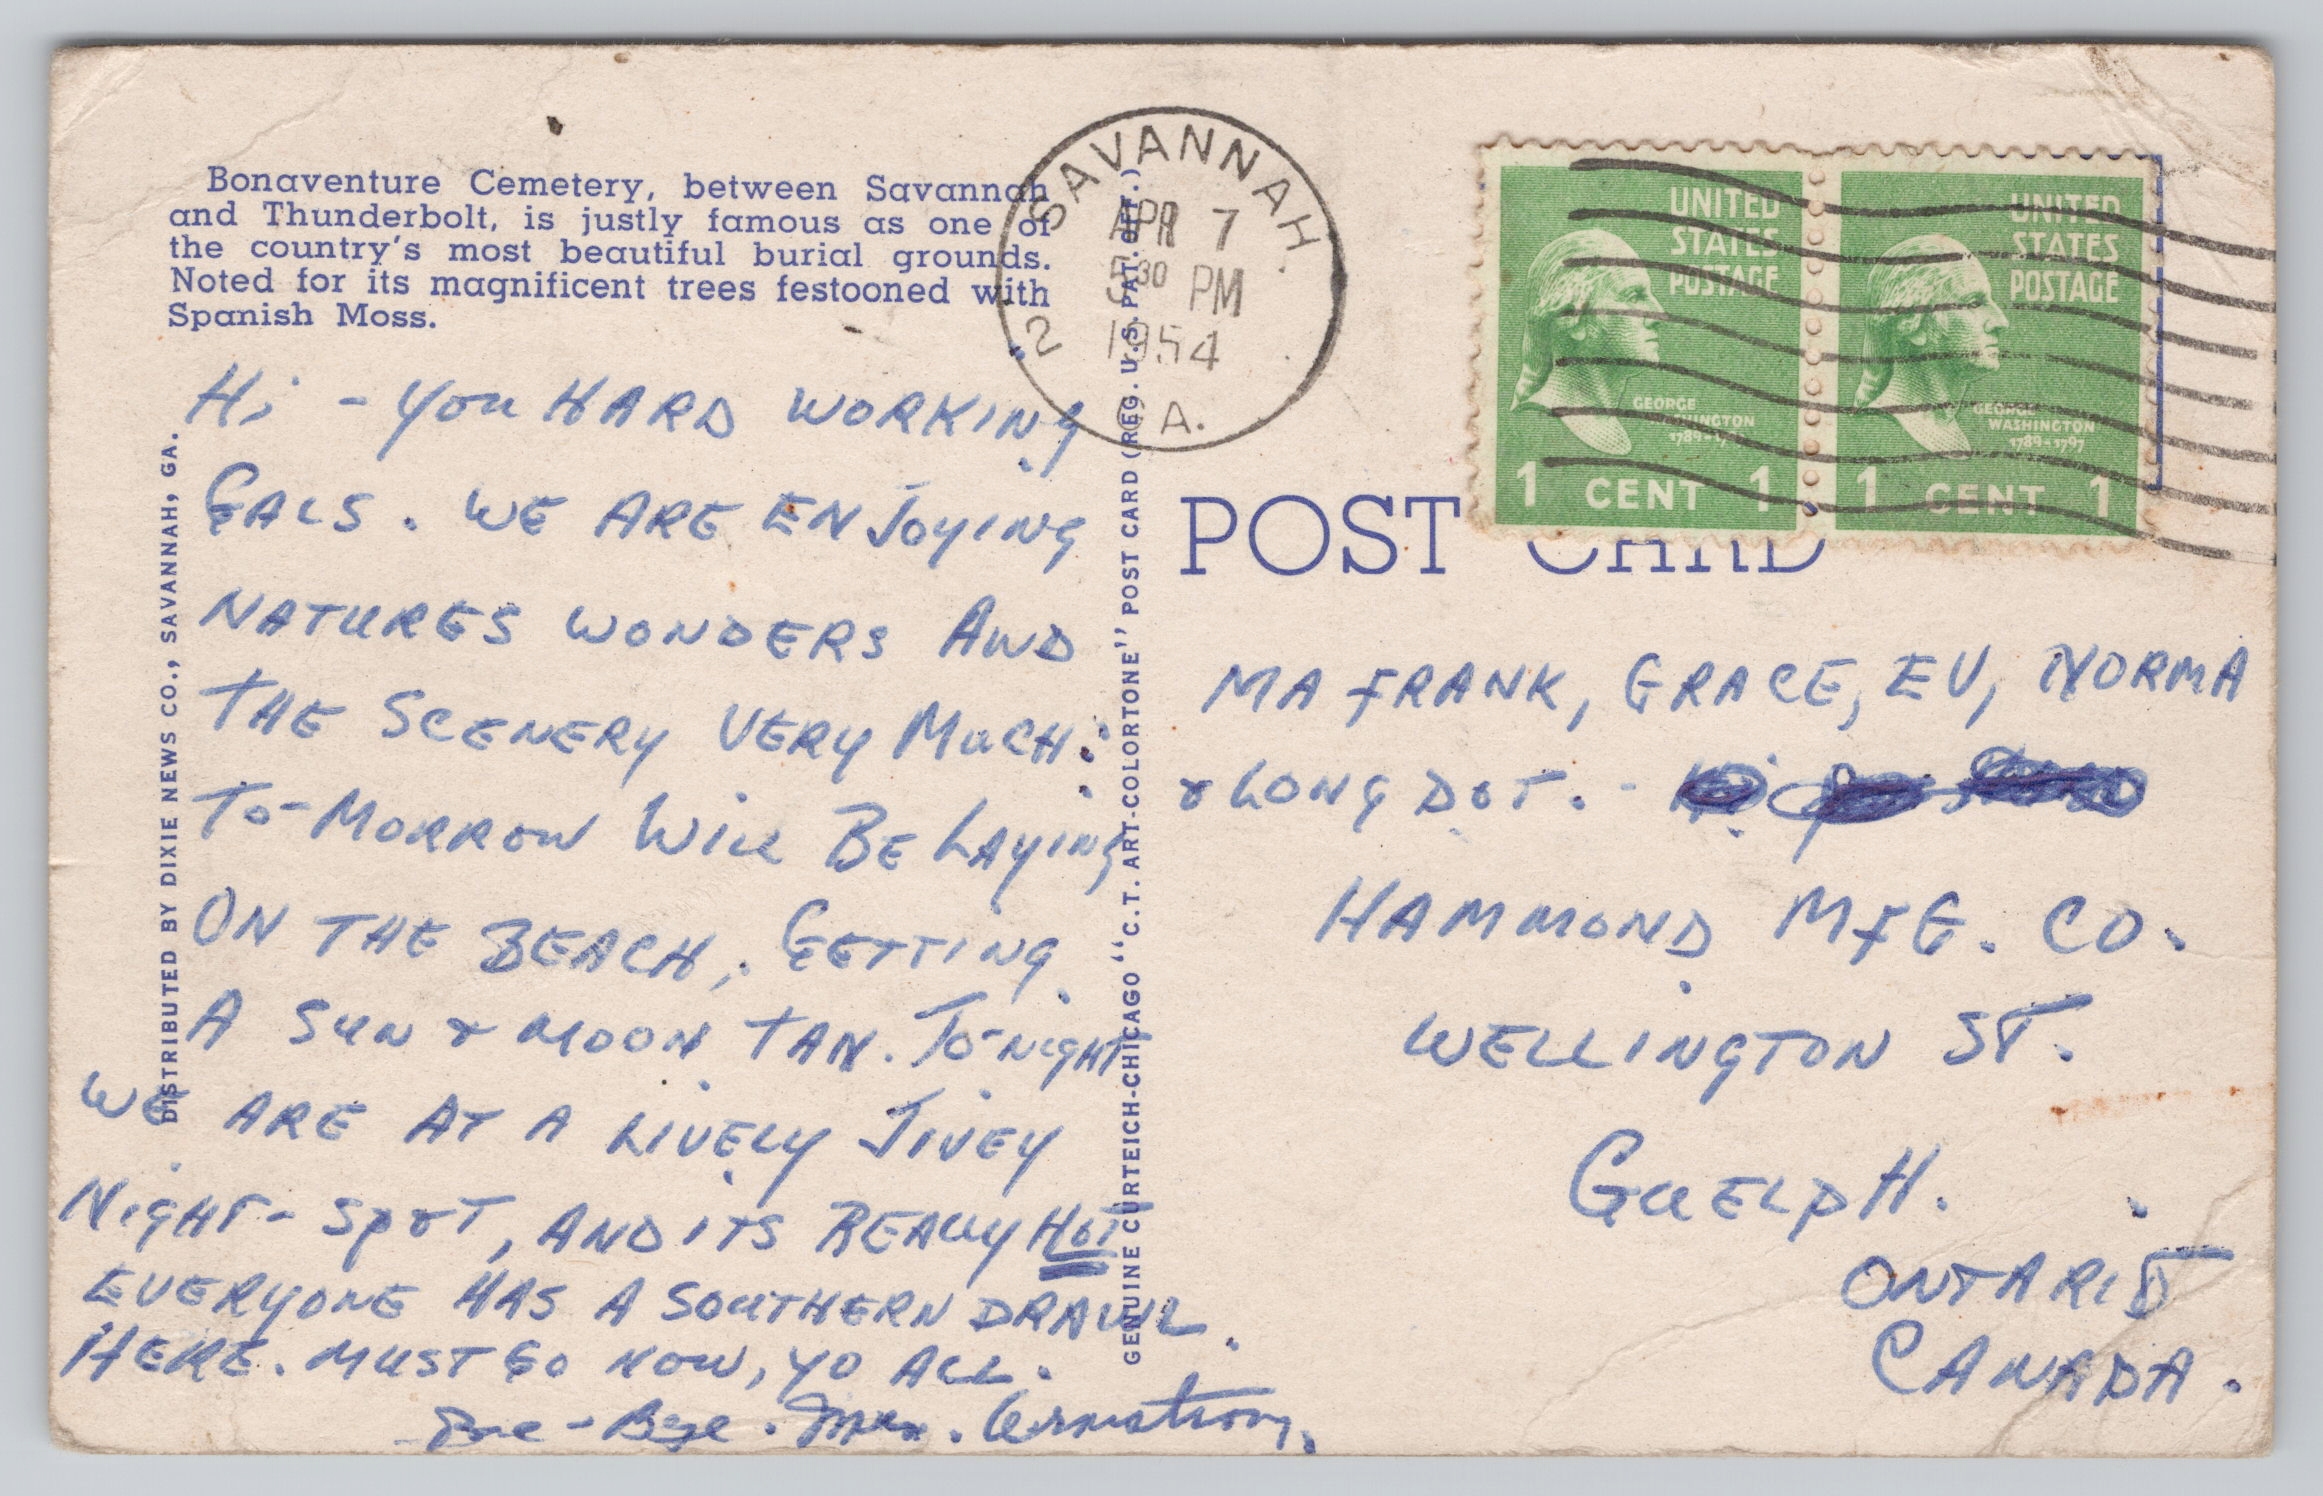 Bonaventure Cemetery, between Savannah
and Thunderbolt, is justly famous as one of
the country's most beautiful burial grounds.
Noted for its magnificent trees festooned with
Spanish Moss.
Hi - YOU HARD WORKING
GALS. WE ARE ENJOYING
NATURES WONDERS AND
THE SCENERY VERY MUCH.
TO-MORROW WILL BE LAYING
ON THE BEACH, GETTING
A SUN & MOON TAN. TO-NIGHT
WE ARE AT A LIVELY JIVEY
NIGHT-SPOT, AND ITS REALLY HOT
EVERYONE HAS A SOUTHERN DRAWL
HERE. MUST GO NOW, YO ALL.
Bye-Bye. Armstrong.
DISTRIBUTED BY DIXIE NEWS CO., SAVANNAH, GA.
GENUINE CURTEICH-CHICAGO "C.T. ART-COLORTONE" POST CARD (REG. U.S. PAT. OFF.)
SAVANNAH
APR 7
5 30 PM
1954
2
A.
UNITED
STATES
POSTAGE
GEORGE
WASHINGTON
1 CENT 1
UNITED
STATES
POSTAGE
GEORGE
WASHINGTON
1789-1797
1 CENT 1
POST CARD
MA FRANK, GRACE, EV, NORMA
& LONG DOT. -
HAMMOND MFG. CO.
WELLINGTON ST.
GUELPH.
ONTARIO
CANADA.